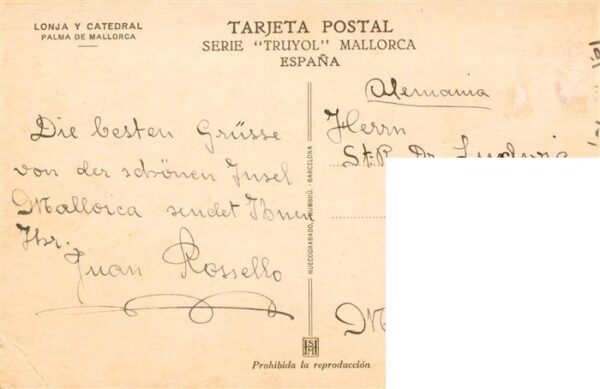 LONJA Y CATEDRAL
PALMA DE MALLORCA
TARJETA POSTAL
SERIE "TRUYOL" MALLORCA
ESPAÑA
Die besten Grüsse
von der schönen Insel
Mallorca sendet Ihnen
Ihr.
Juan Rossello
Alemania
Herrn
St.P. Dr.
HUECOGRABADO, RUMBRÚ.-BARCELONA
Prohibida la reproducción